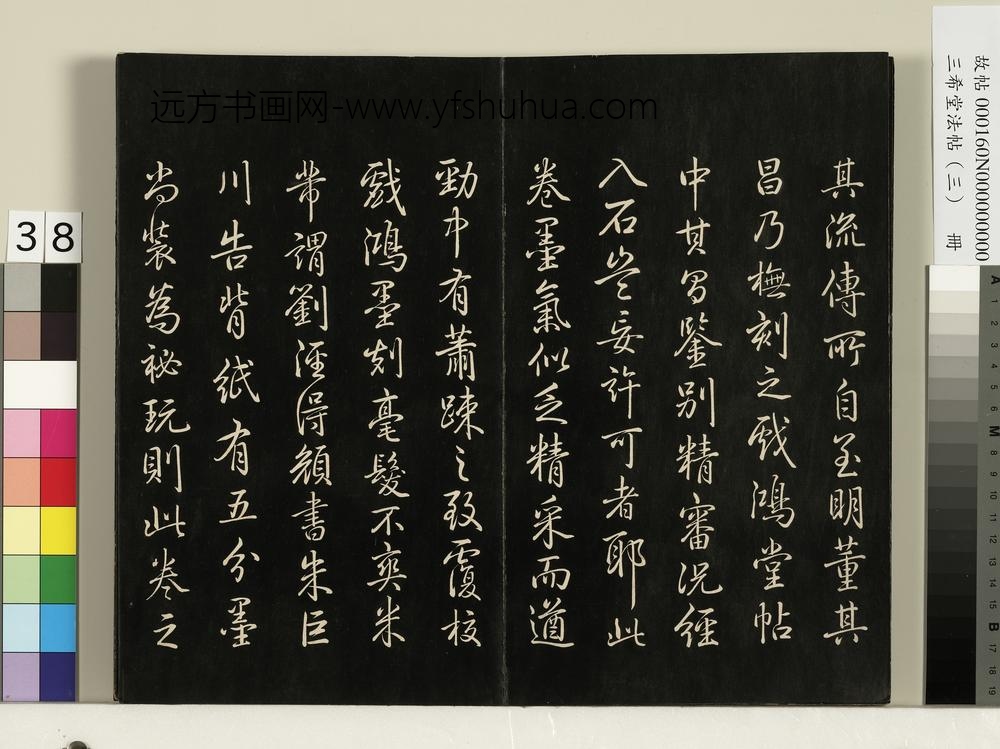 其流傳所自至明董其
昌乃橅刻之戲鴻堂帖
中其昌鑒別精審況經
入石豈妄許可者耶此
卷墨氣似乏精采而遒
勁中有蕭疎之致覆校
戲鴻墨刻毫髮不爽米
芾謂劉涇得顏書朱巨
川告背紙有五分墨
尚裝為祕玩則此卷之
远方书画网-www.yfshuhua.com
38
故帖 000160N000000000
三希堂法帖(三) 冊
A
1
2
3
4
5
6
M
8
9
10
11
12
13
14
15
B
17
18
19